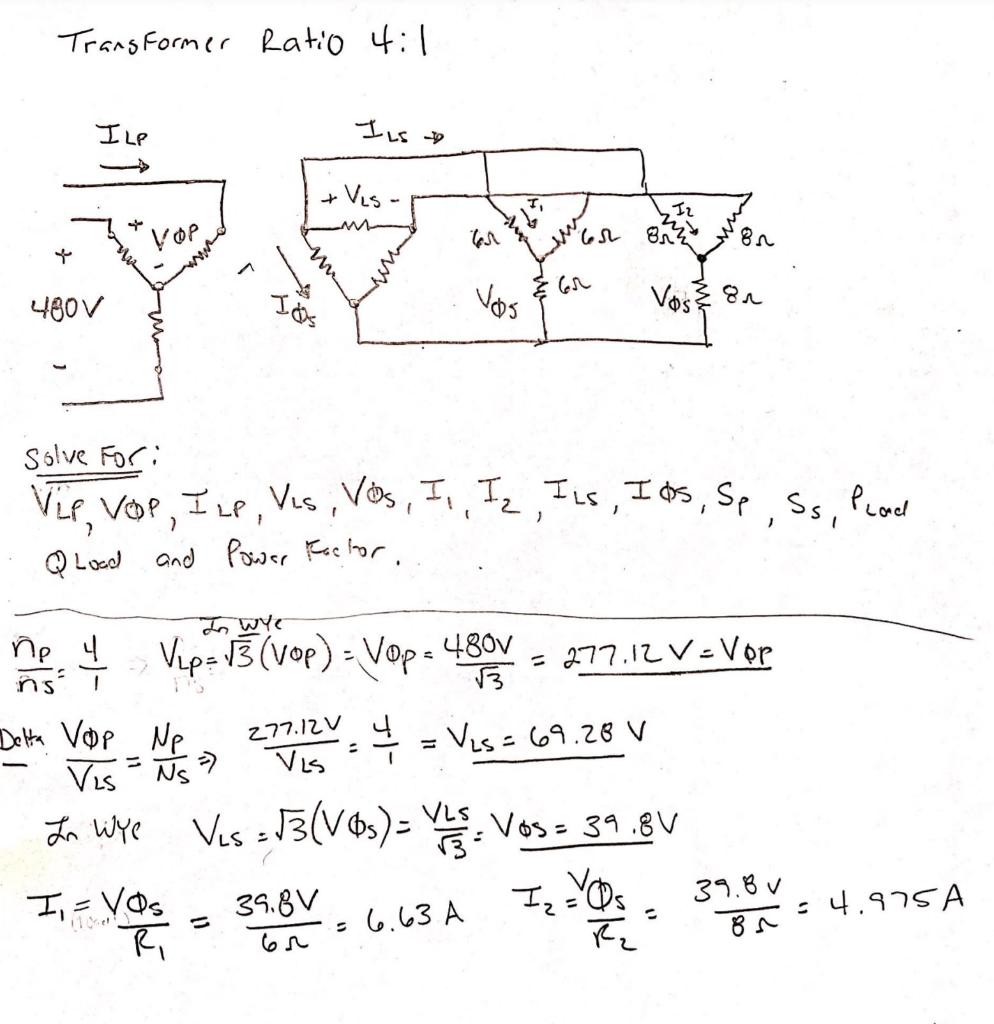 Transformer Ratio 4:1
ILP
ILS →
+ VLS -
+ VΦP -
+
480V
-
IΦS
I1
6Ω
6Ω
6Ω
VΦS
I2
8Ω
8Ω
8Ω
VΦS
Solve For:
VLP, VΦP, ILP, VLS, VΦS, I1, I2, ILS, IΦS, SP, SS, PLoad
QLoad and Power Factor.
In wye
nP/nS = 4/1 VLP = √3(VΦP) = VΦP = 480V/√3 = 277.12V = VΦP
Delta VΦP/VLS = NP/NS ⇒ 277.12V/VLS = 4/1 = VLS = 69.28 V
In Wye VLS = √3(VΦS) = VLS/√3 = VΦS = 39.8V
I1 = VΦS/R1 = 39.8V/6Ω = 6.63 A I2 = VΦS/R2 = 39.8V/8Ω = 4.975A